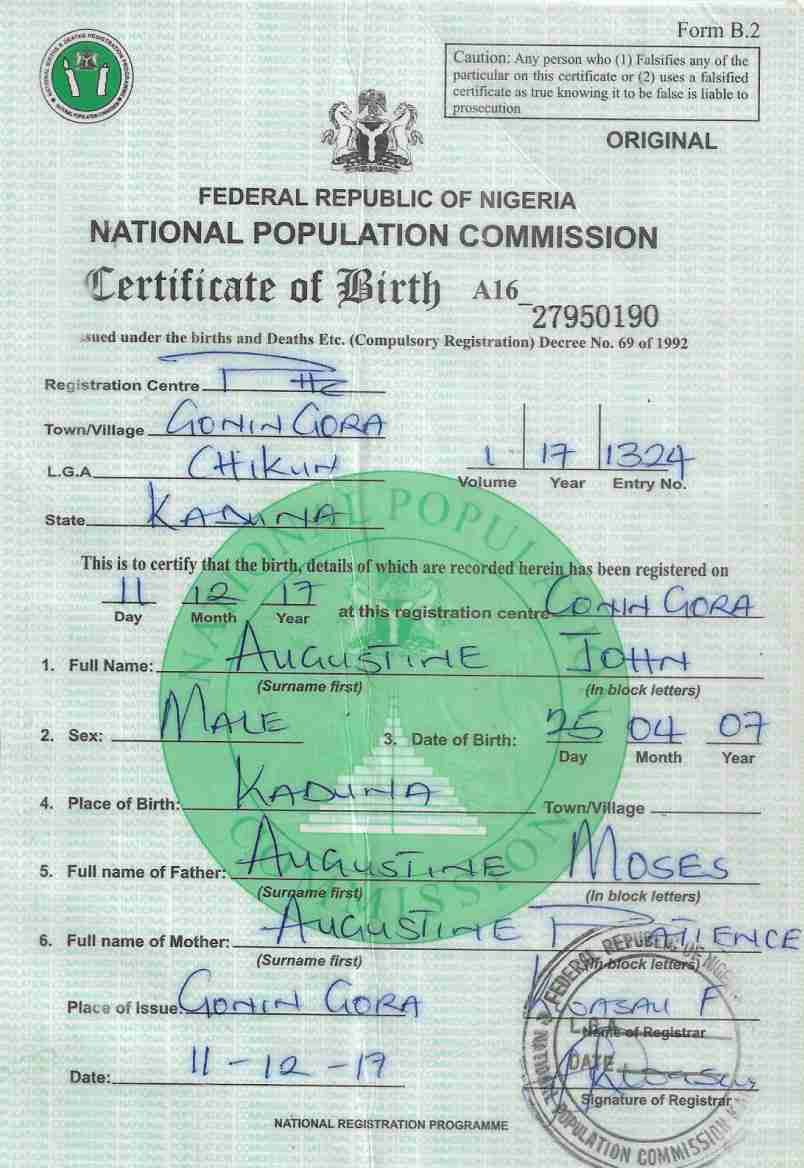 Form B.2
Caution: Any person who (1) Falsifies any of the
particular on this certificate or (2) uses a falsified
certificate as true knowing it to be false is liable to
prosecution
ORIGINAL
FEDERAL REPUBLIC OF NIGERIA
NATIONAL POPULATION COMMISSION
Certificate of Birth A16_ 27950190
sued under the births and Deaths Etc. (Compulsory Registration) Decree No. 69 of 1992
Registration Centre
Town/Village GONIN GORA
L.G.A CHIKUN
1 17 1324
Volume Year Entry No.
State KADUNA
This is to certify that the birth, details of which are recorded herein has been registered on
11 12 17 at this registration centre GONIN GORA
Day Month Year
1. Full Name: AUGUSTINE JOHN
(Surname first) (In block letters)
2. Sex: MALE 3. Date of Birth: 25 04 07
Day Month Year
4. Place of Birth: KADUNA Town/Village
5. Full name of Father: AUGUSTINE MOSES
(Surname first) (In block letters)
6. Full name of Mother: AUGUSTINE PATIENCE
(Surname first) (In block letters)
Place of Issue: GONIN GORA
Name of Registrar
Date: 11-12-17
Signature of Registrar
L.G.A
DATE
NATIONAL REGISTRATION PROGRAMME